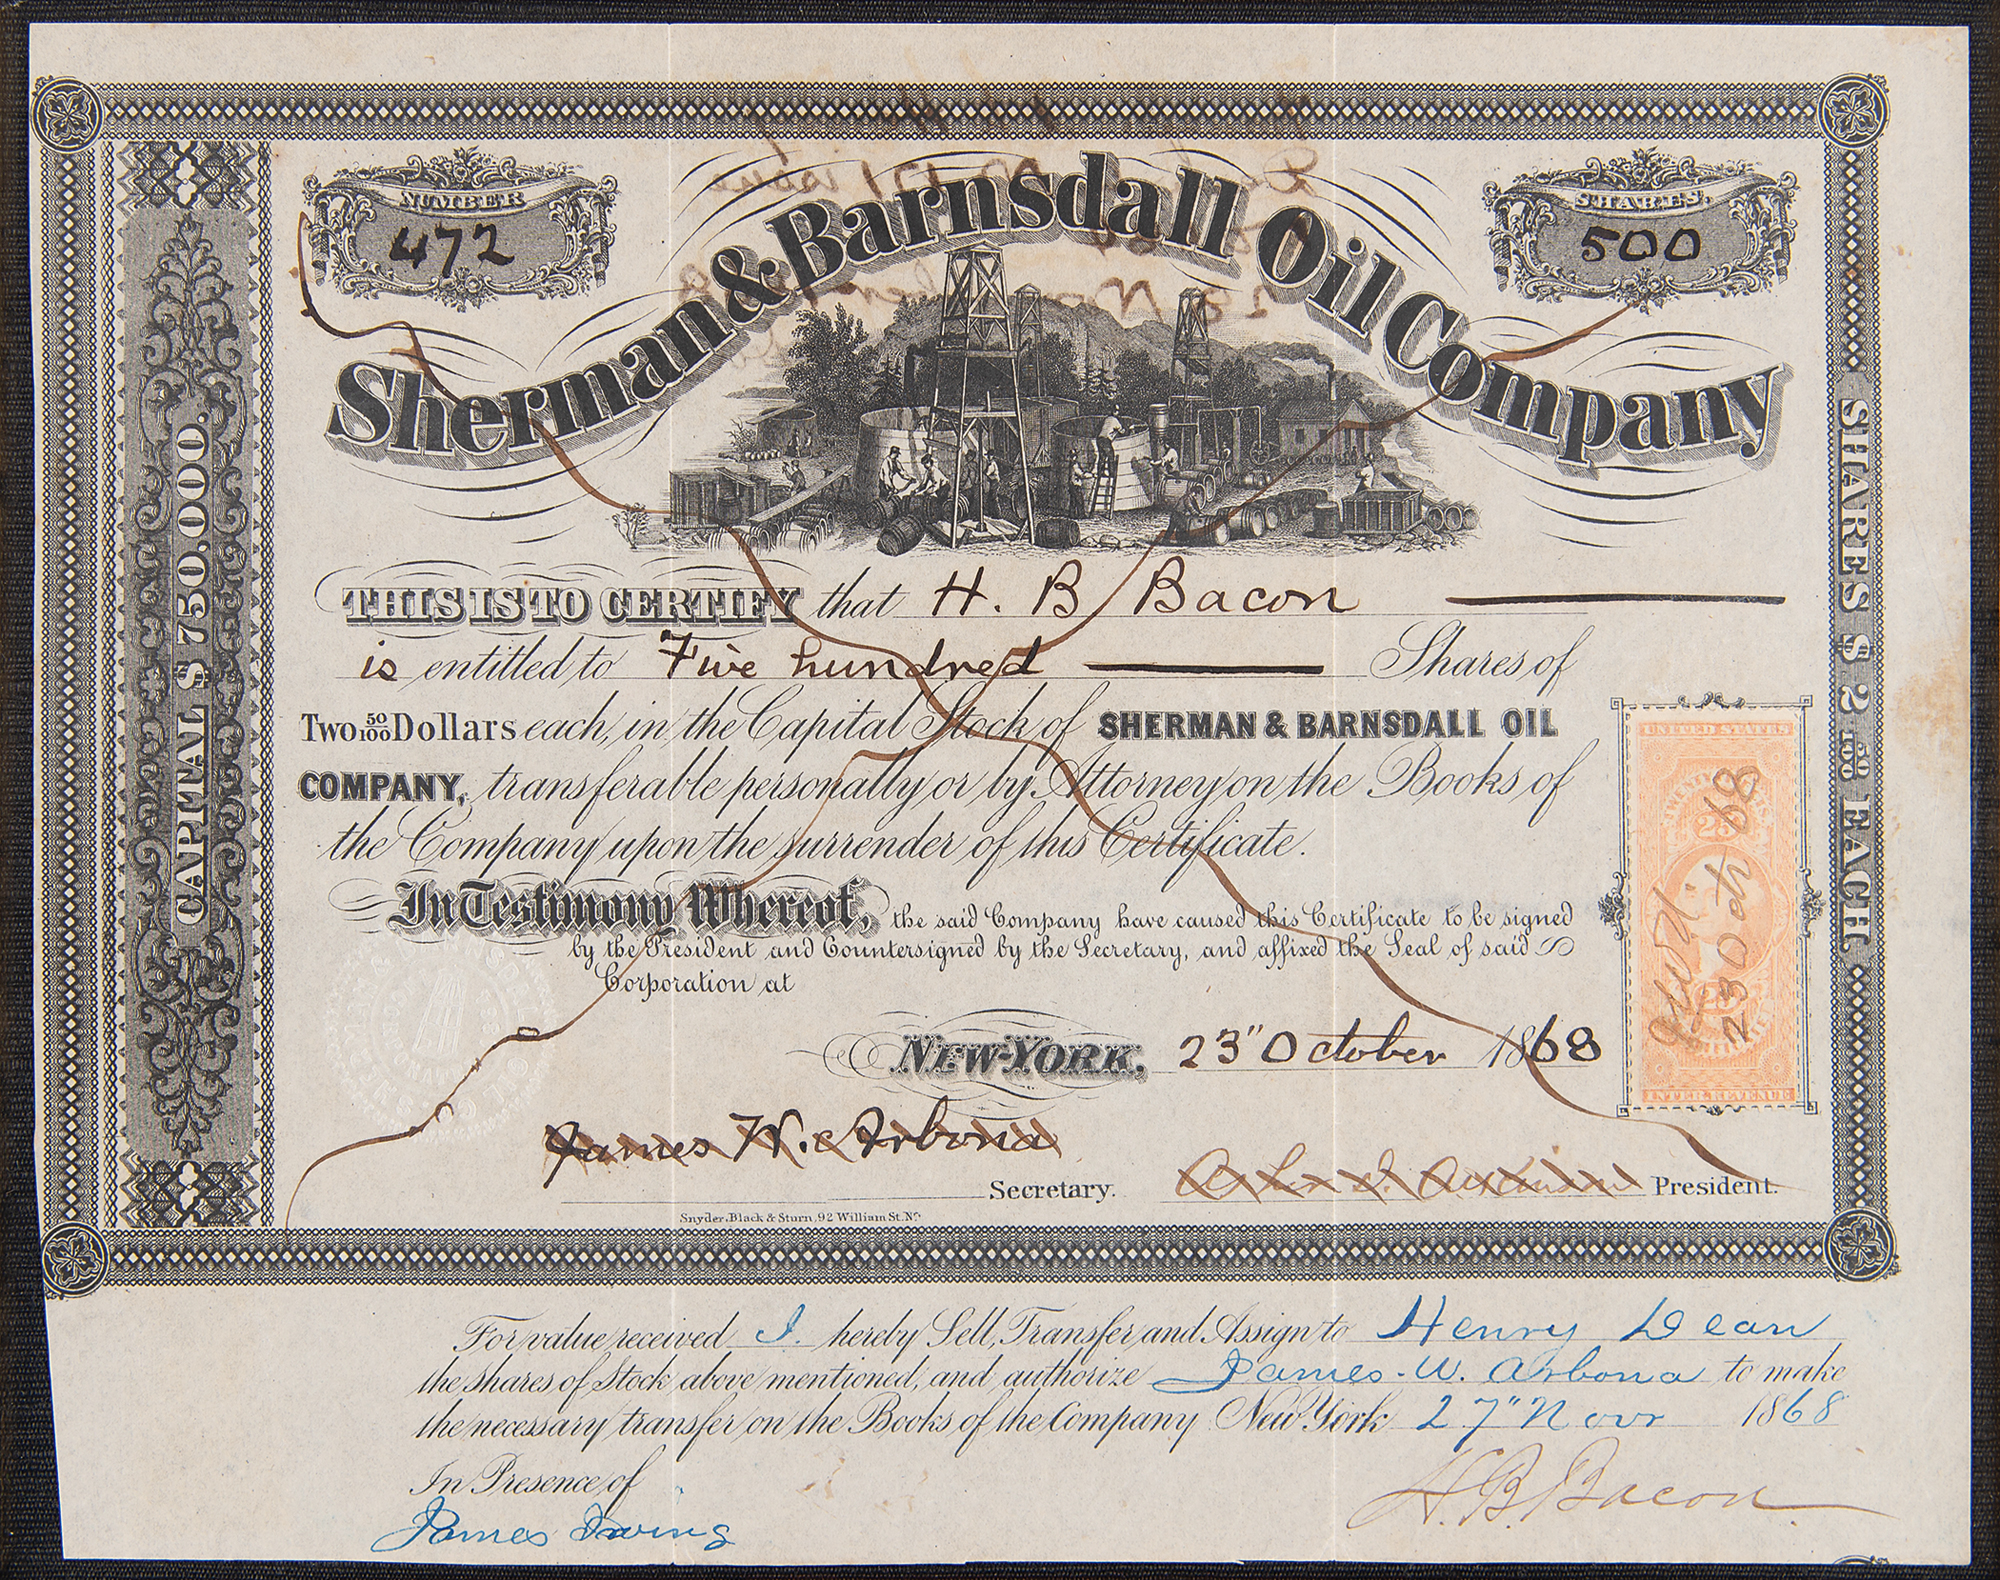 NUMBER
472
SHARES.
500
Sherman & Barnsdall Oil Company
CAPITAL $ 750,000.
SHARES $ 2 50/100 EACH
THIS IS TO CERTIFY that H. B Bacon
is entitled to Five hundred Shares of
Two 50/100 Dollars each, in the Capital Stock of SHERMAN & BARNSDALL OIL
COMPANY, transferable personally or by Attorney on the Books of
the Company upon the surrender of this Certificate.
In Testimony Whereof, the said Company have caused this Certificate to be signed
by the President and Countersigned by the Secretary, and affixed the Seal of said
Corporation at
NEW-YORK, 23" October 1868
UNITED STATES
25
23 Oct 68
INTER. REVENUE
James W. Arbona
Secretary.
President.
Snyder, Black & Sturn, 92 William St. N.Y.
For value received I. hereby Sell, Transfer and Assign to Henry Dean
the shares of Stock above mentioned, and authorize James. W. Arbona to make
the necessary transfer on the Books of the Company New York 27" Novr 1868
In Presence of
James Irving
H. B. Bacon